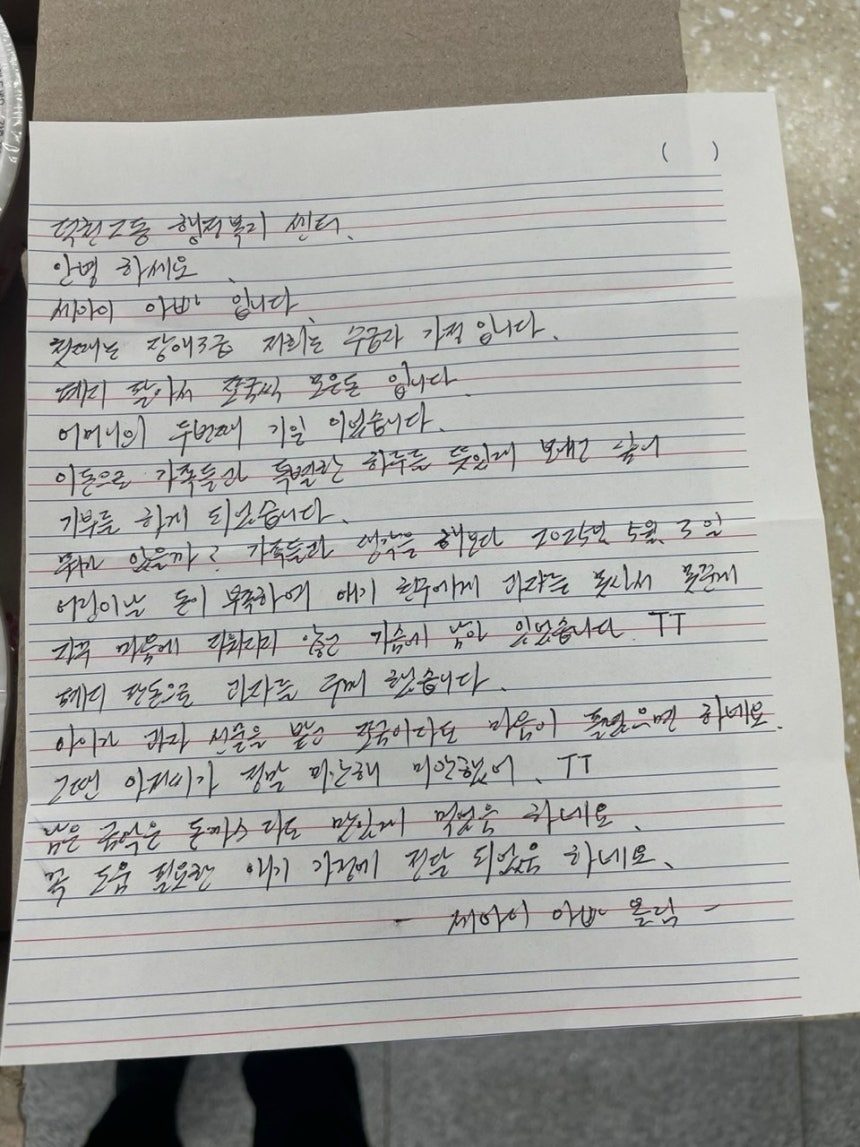 ( )
덕천2동 행정복지 센터.
안녕 하세요.
세아이 아빠 입니다.
첫째는 장애3급 저희는 수급자 가정 입니다.
폐지 팔아서 조금씩 모은돈 입니다.
어머니의 두번째 기일 이었습니다.
이돈으로 가족들과 특별한 하루를 뜻있게 보내고 싶어
기부를 하게 되었습니다.
뭐가 있을까? 가족들과 생각을 해보다 2025년 5월 5일
어린이날 돈이 부족하여 애기 친구에게 과자를 못사서 못준게
자꾸 마음에 않고 가슴에 남아 있었습니다. TT
폐지 판돈으로 과자를 구매 했습니다.
아이가 과자 선물을 받고 조금이라도 마음이 풀렸으면 하네요.
그땐 아저씨가 정말 미안해 미안했어. TT
남은 금액은 돈까스 라도 맛있게 먹었음 하네요.
꼭 도움 필요한 애기 가정에 전달 되었음 하네요.
- 세아이 아빠 올림 -